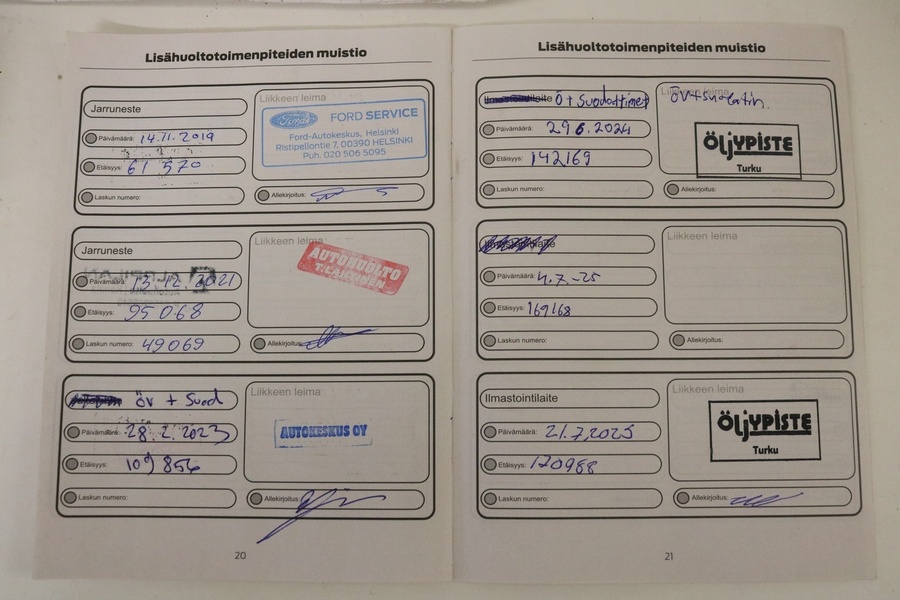 Lisähuoltotoimenpiteiden muistio
Jarruneste
Liikkeen leima
Ford
FORD SERVICE
Ford-Autokeskus, Helsinki
Ristipellontie 7, 00390 HELSINKI
Puh. 020 506 5095
Päivämäärä: 14.11.2019
Etäisyys: 61 570
Laskun numero:
Allekirjoitus:
Jarruneste
Liikkeen leima
AUTOHUOLTO
Päivämäärä: 13.12.2021
Etäisyys: 95 068
Laskun numero: 49069
Allekirjoitus:
öv + Suod
Liikkeen leima
AUTOKESKUS OY
Päivämäärä: 28.2.2023
Etäisyys: 109 856
Laskun numero:
Allekirjoitus:
20
Lisähuoltotoimenpiteiden muistio
Ilmastointilaite
Liikkeen leima
ÖLJYPISTE
Turku
Päivämäärä: 29 6.2024
Etäisyys: 142169
Laskun numero:
Allekirjoitus:
Ilmastointilaite
Liikkeen leima
Päivämäärä: 4.7.-25
Etäisyys: 169168
Laskun numero:
Allekirjoitus:
Ilmastointilaite
Liikkeen leima
ÖLJYPISTE
Turku
Päivämäärä: 21.7.2025
Etäisyys: 170988
Laskun numero:
Allekirjoitus:
21